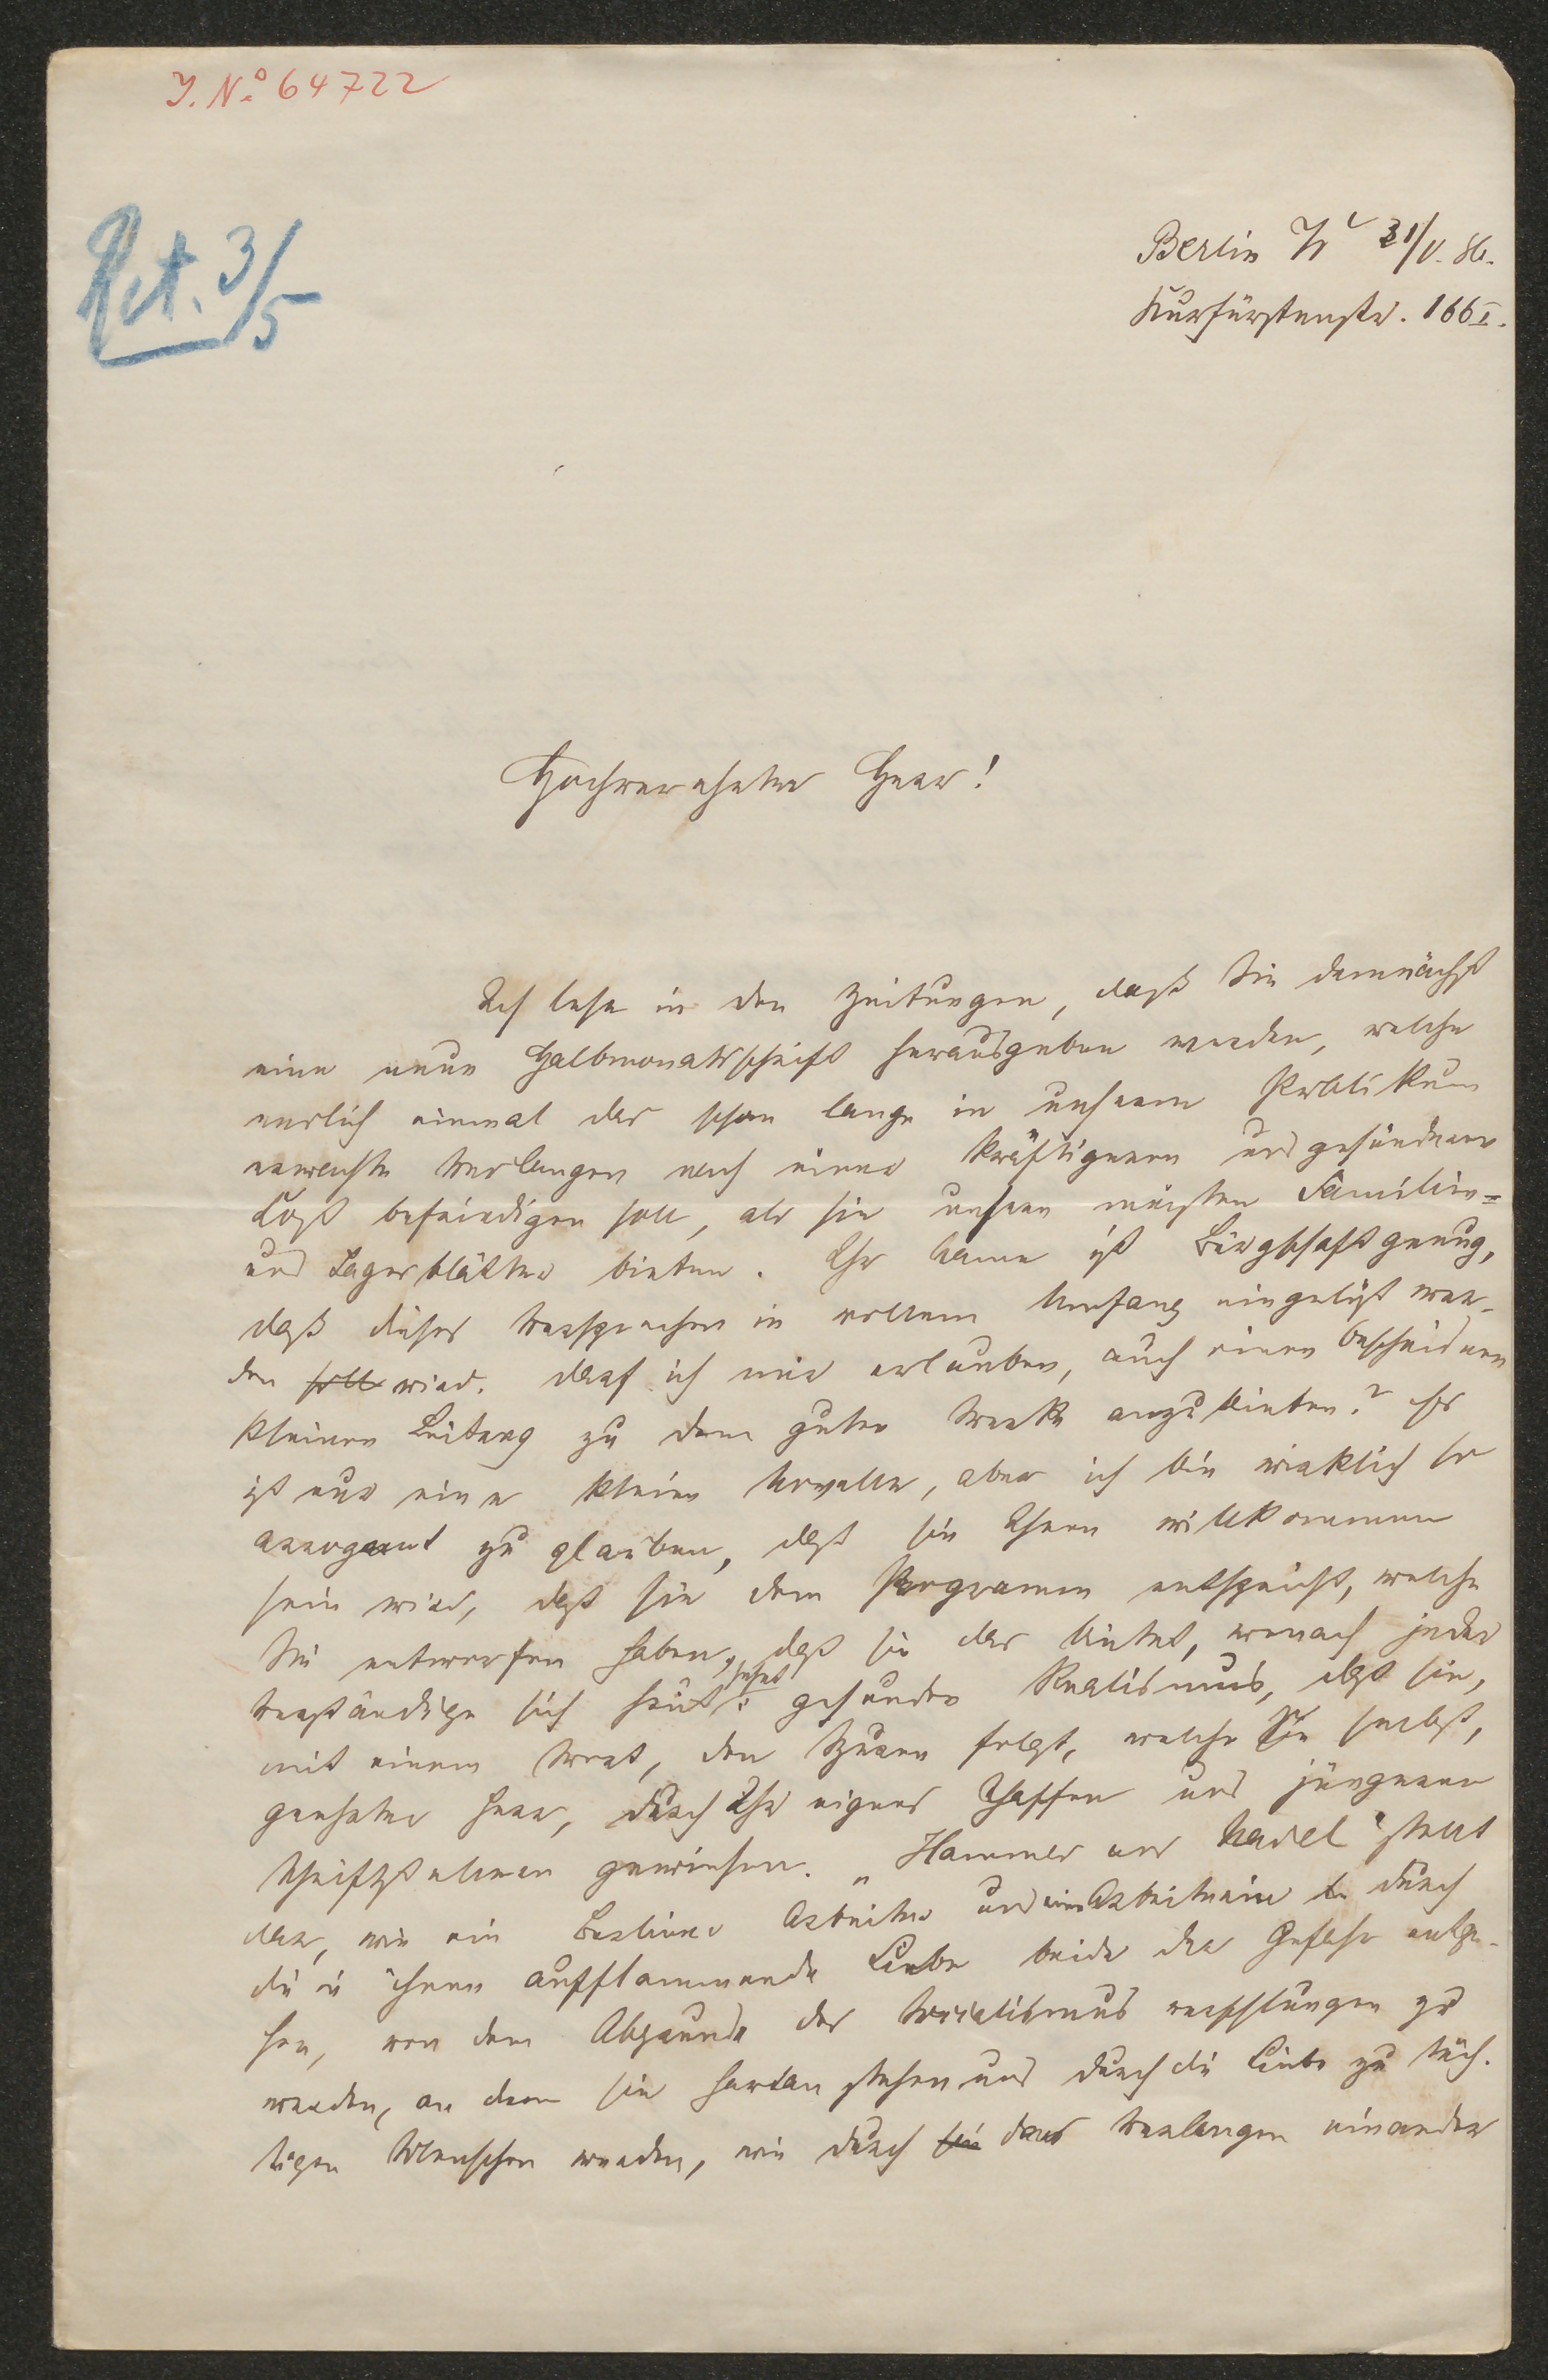 J. N.º 64722
Ret. 3/5
Berlin W 31/V. 86.
Kurfürstenstr. 166 I.
Hochverehrter Herr!
Ich lese in den Zeitungen, daß Sie demnächst
eine neue Halbmonatsschrift herausgeben werden, welche
endlich einmal das schon lange in unserem Publikum
erwachte Verlangen nach einer kräftigeren und gesünderen
Kost befriedigen soll, als sie unsere meisten Familien-
und Tagesblätter bieten. Ihr Name ist Bürgschaft genug,
daß dieses Versprechen in vollem Umfang eingelöst wer-
den soll wird. Darf ich mir erlauben, auch einen bescheidnen
kleinen Beitrag zu dem guten Werke anzubieten? Es
ist nur eine kleine Novelle, aber ich bin wirklich so
arrogant zu glauben, daß sie Ihnen willkommen
sein wird, daß sie dem Programm entspricht, welches
Sie entworfen haben, daß sie das bietet, wonach jeder
Verständige sich heut sehnt: gesunden Realismus, daß sie,
mit einem Wort, den Spuren folgt, welche Sie selbst,
geehrter Herr, durch Ihr eignes Schaffen uns jüngeren
Schriftstellern gewiesen. „Hammer und Nadel" stellt
dar, wie ein Berliner Arbeiter und eine Arbeiterin durch
die in ihnen aufflammende Liebe beide der Gefahr entge-
hen, von dem Abgrunde des Socialismus verschlungen zu
werden, an dem sie hart an stehen und durch die Liebe zu tüch-
tigen Menschen werden, wie durch sie das Verlangen einander